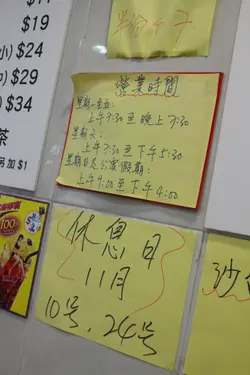 $19
小) $24
中) $29
$34
茶
另加 $1
100
營業時間
星期一至五:
上午7:30 至 晚上7:30
星期六:
上午7:30 至 下午5:30
星期日及公眾假期:
上午9:00 至 下午4:00
休息日
11月
10号、24号
沙